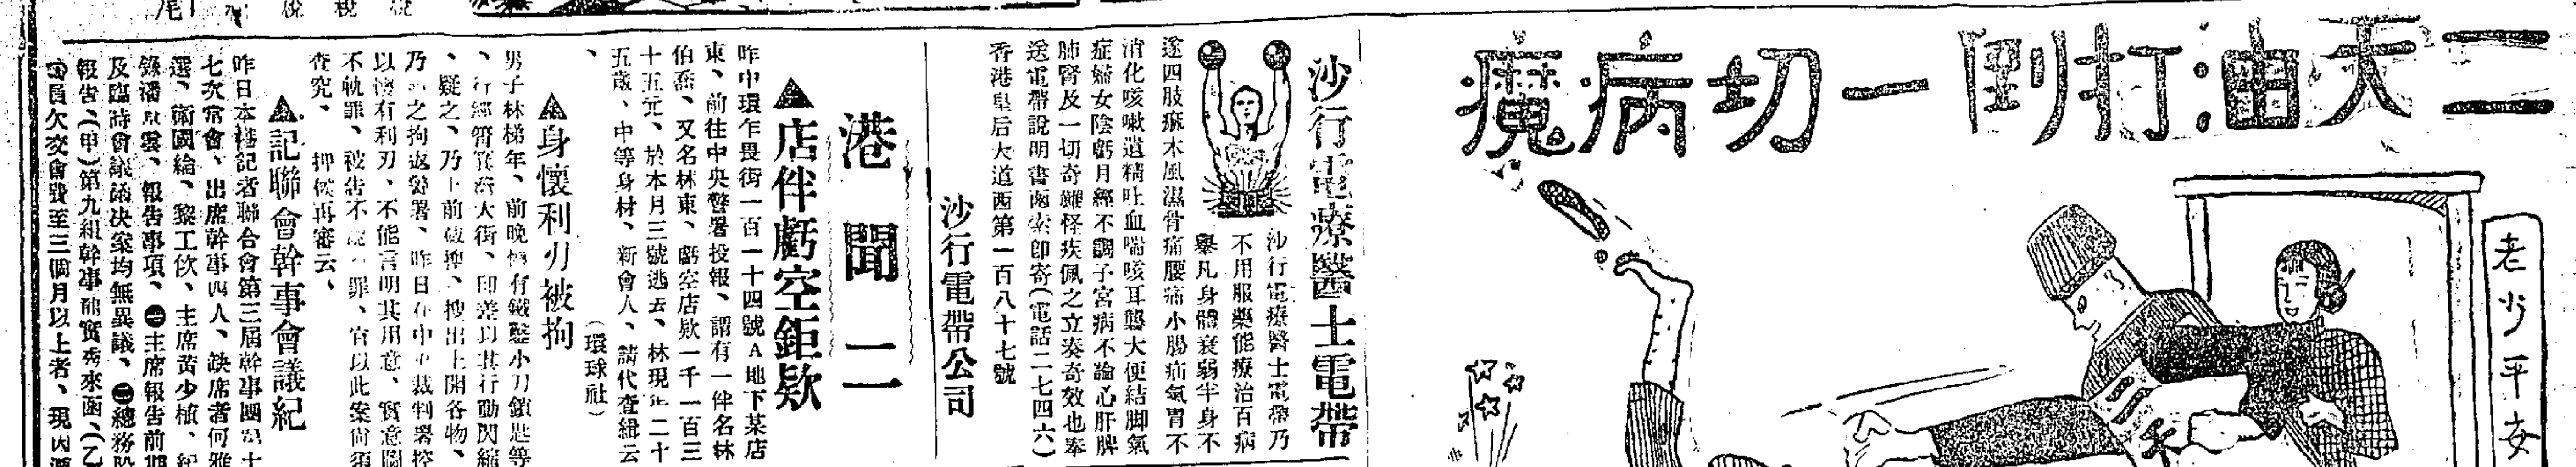 二天油打倒一切病魔
老少平安
沙行電療醫士電帶
沙行電療醫士電帶乃
不用服藥能療治百病
舉凡身體衰弱半身不
遂四肢痳木風濕骨痛腰痛小腸疝氣胃不
消化咳嗽遺精吐血喘咳耳聾大便結脚氣
症婦女陰虧月經不調子宮病不論心肝脾
肺腎及一切奇難怪疾佩之立奏奇效也奉
送電帶說明書函索卽寄(電話二七四六)
香港皇后大道西第一百八十七號
沙行電帶公司
港聞二
▲店伴虧空鉅欵
昨中環乍畏街一百一十四號A地下某店
東、前往中央警署投報、謂有一伴名林
伯喬、又名林東、虧空店欵一千一百三
十五元、於本月三號逃去、林現年二十
五歲、中等身材、新會人、請代查緝云
、
(環球社)
▲身懷利刃被拘
男子林梯年、前晚懷有鐵鑿小刀鎖匙等
、行經大街、印差以其行動閃縮
、疑之、乃上前搜出上開各物、
乃之拘返警署、昨日在中央裁判署控
以懷有利刃、不能言明其用意、實意圖
不軌罪、被告不罪、官以此案尙須
查究、押候再審云、
▲記聯會幹事會議紀
昨日本港記者聯合會第三屆幹事團第十
七次常會、出席幹事四人、缺席者何雅
選、衛國綸、黎工佽、主席黃少植、紀
錄潘雲、報告事項、㊀主席報告前期
及臨時會議議決案均無異議、㊁總務股
報告、(甲)第九組幹事龍實秀來函、(乙
)會員欠交會費至三個月以上者、現因